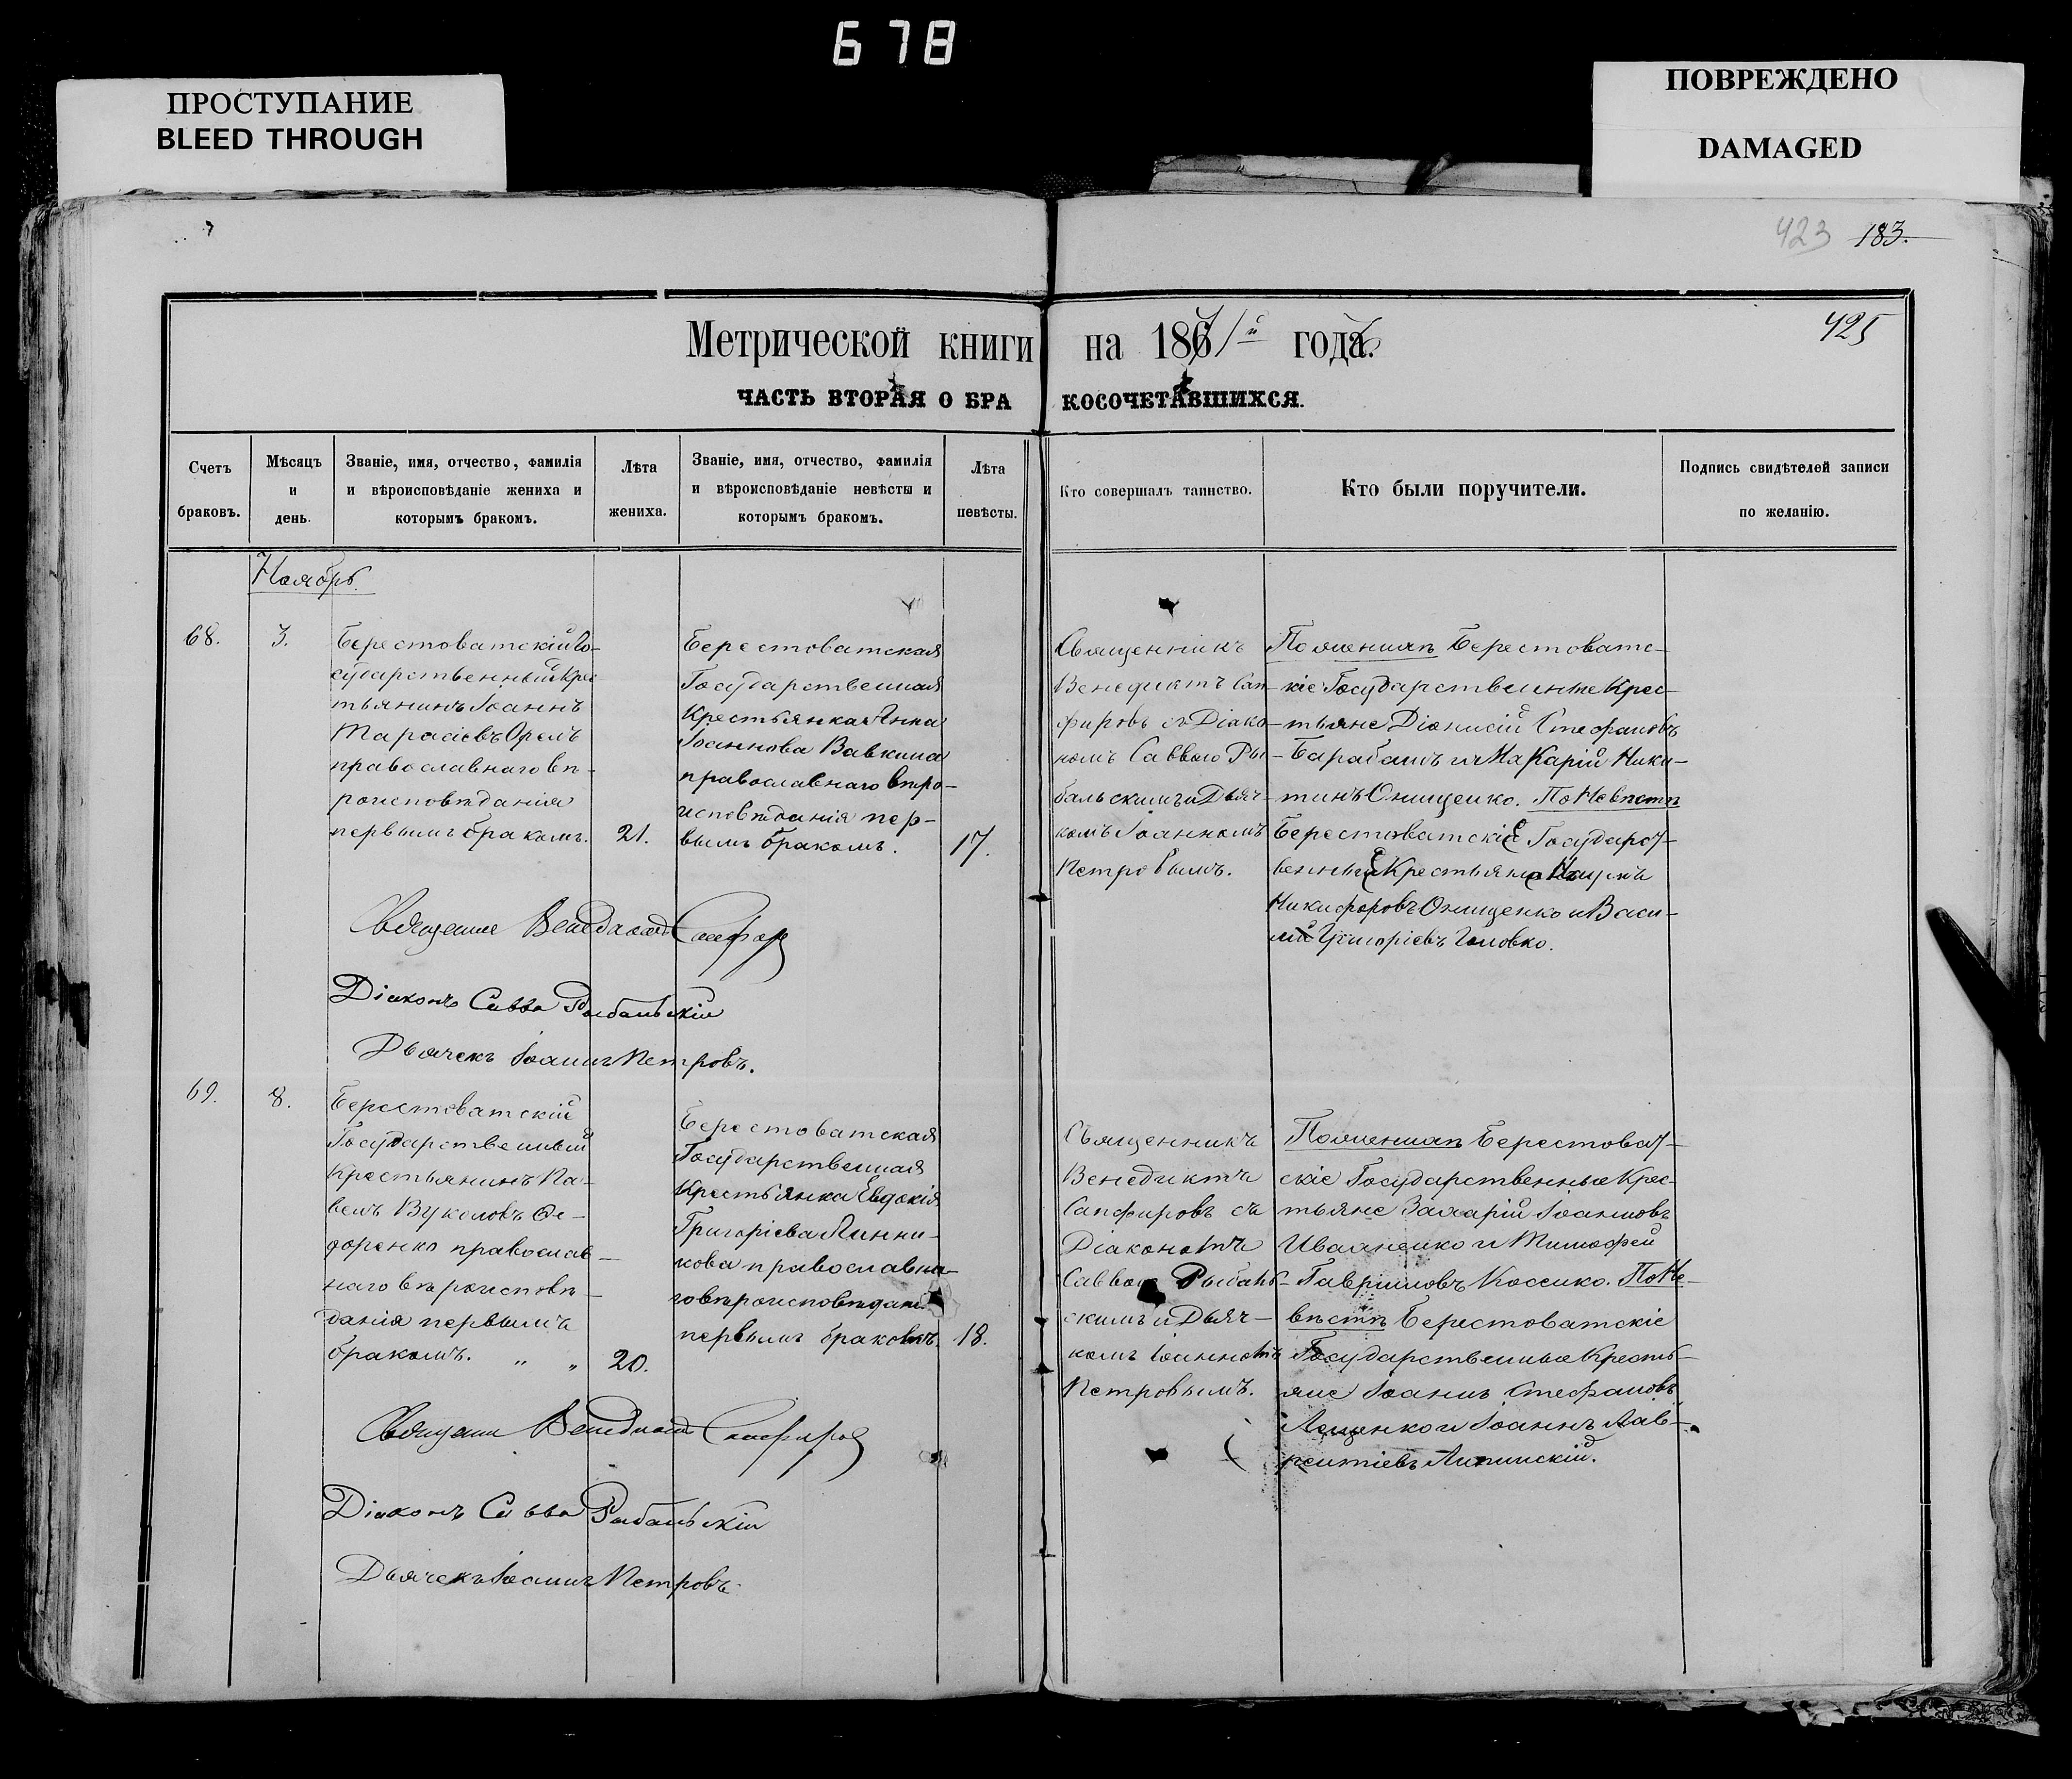 678
ПРОСТУПАНИЕ
BLEED THROUGH
ПОВРЕЖДЕНО
DAMAGED
423 183.
425
Метрической книги на 1871й года.
ЧАСТЬ ВТОРАЯ О БРАКОСОЧЕТАВШИХСЯ.
Счетъ
браковъ.
Мѣсяцъ
и
день.
Званіе, имя, отчество, фамилія
и вѣроисповѣданіе жениха и
которымъ бракомъ.
Лѣта
жениха.
Званіе, имя, отчество, фамилія
и вѣроисповѣданіе невѣсты и
которымъ бракомъ.
Лѣта
невѣсты.
Кто совершалъ таинство.
Кто были поручители.
Подпись свидѣтелей записи
по желанію.
Ноябрь.
68.
3.
Берестоватскій Го-
сударственный Крес
тьянинъ Іоаннъ
Тарасіевъ Орелъ
православнаго вѣ-
роисповѣданія
первымъ бракомъ.
21.
Берестоватская
Государственная
Крестьянка Анна
Іоаннова Вавкина
православнаго вѣро-
исповѣданія пер-
вымъ бракомъ.
17.
Священникъ
Венедиктъ Сап-
фировъ съ Діако-
номъ Саввою Ры-
бальскимъ и Дьяч-
комъ Іоанномъ
Петровымъ.
По женихѣ Берестоватс-
кіе Государственные Крес-
тьяне Діонисій Стефановъ
Барабашъ и Макарій Ники-
тинъ Онищенко. По Невѣстѣ
Берестоватскіе Государст-
венные Крестьяне Наумъ
Никифоровъ Онищенко и Васи-
лій Григоріевъ Головко.
Священник Венедикт Сапфир
Діаконъ Савва Рыбальскій
Дьячекъ Іоаннъ Петровъ.
69.
8.
Берестоватскій
Государственный
Крестьянинъ Па-
велъ Вуколовъ Ѳе-
доренко православ-
наго вѣроисповѣ-
данія первымъ
бракомъ. " "
20.
Берестоватская
Государственная
Крестьянка Евдокія
Григоріева Линни-
кова православна-
го вѣроисповѣдан
первымъ бракомъ.
18.
Священникъ
Венедиктъ
Сапфировъ съ
Діакономъ
Саввою Рыбаль-
скимъ и Дьяч-
комъ Іоанномъ
Петровымъ.
По женихѣ Берестоват-
скіе Государственные Крес-
тьяне Захарій Іоанновъ
Иваненко и Тимофей
Гавриловъ Косенко. По Не-
вѣстѣ Берестоватскіе
Государственные Кресть-
яне Іоаннъ Стефановъ
Лещенко и Іоаннъ Лав-
рентіевъ Липинскій.
Священник Венедикт Сапфиров
Діаконъ Савва Рыбальскій
Дьячекъ Іоаннъ Петровъ.